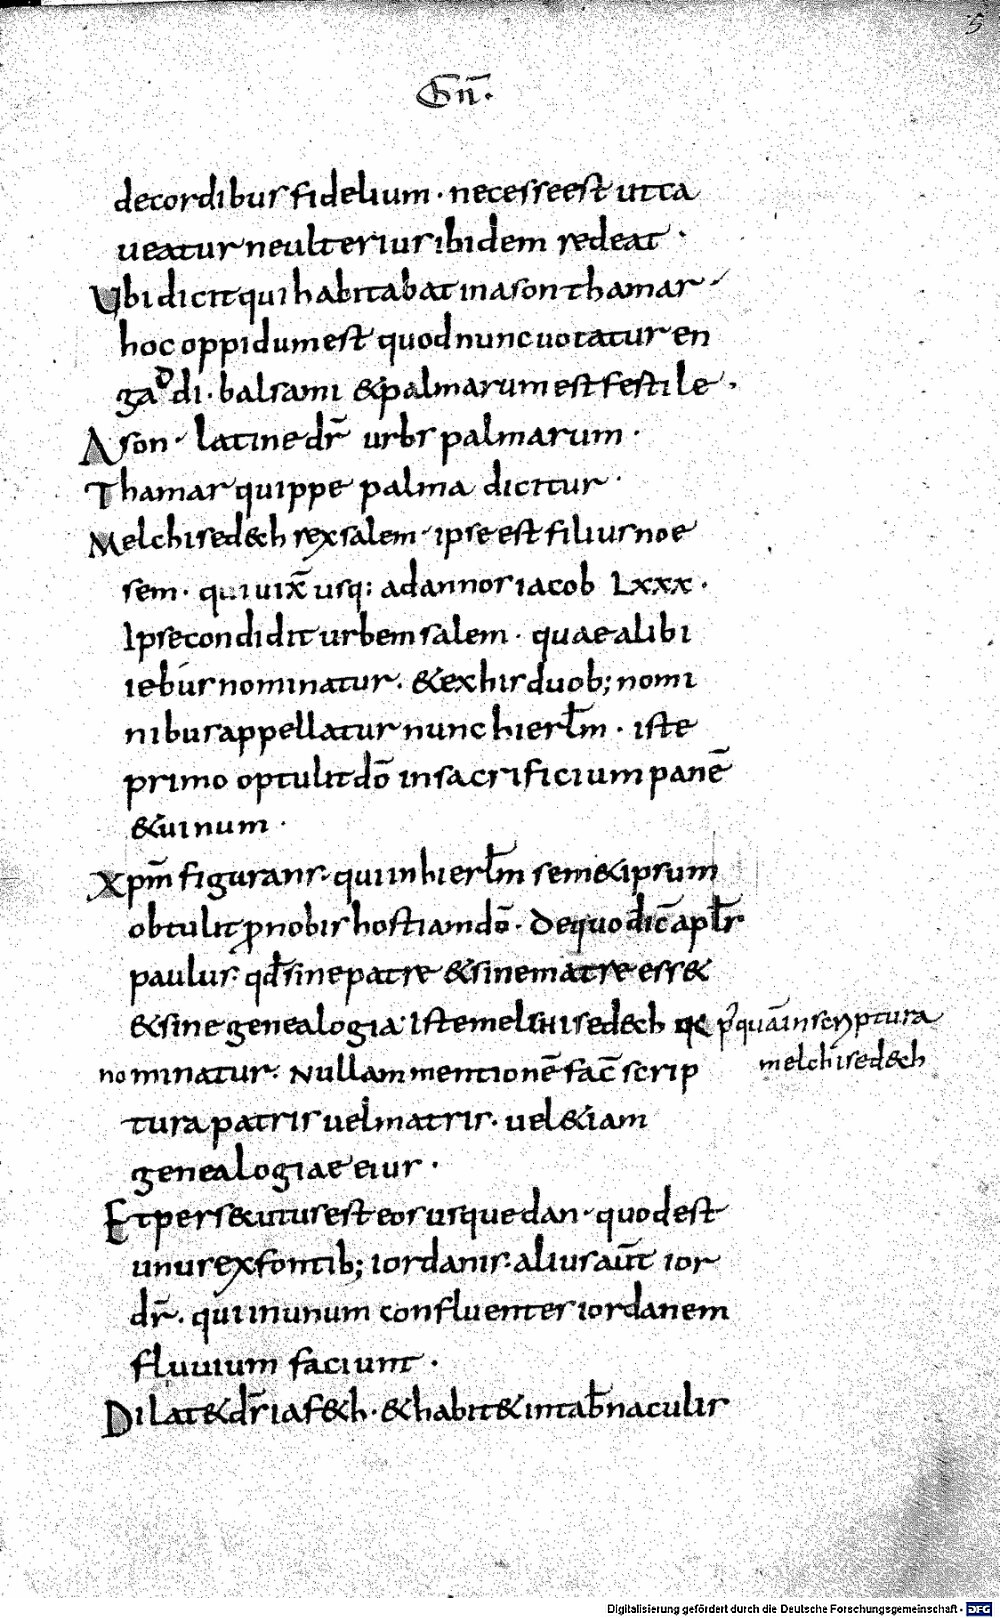 5
Gn̄.
de cordibus fidelium · necesse est ut ca
ueatur ne ulterius ibidem redeat ·
Ubi dicit qui habitabat in asonthamar ·
hoc oppidum est quod nunc uocatur en
gaddi · balsami & palmarum est festile ·
Ason · latine dr̄ urbs palmarum ·
Thamar quippe palma dicitur ·
Melchised&h rex salem · ipse est filius noe
sem · qui uix̄ usq: ad annos iacob Lxxx ·
Ipse condidit urbem salem · quae alibi
iebús nominatur · & ex his duob; nomi
nibus appellatur nunc hierl̄m · iste
primo optulit dō in sacrificium panē
& uinum ·
Xp̄m figurans · qui in hierl̄m sem&ipsum
obtulit ꝓ nobis hostiam dō · De quo dic̄ apl̄s
paulus · qd̄ sine patre & sine matre ess&
& sine genealogia · iste melchised&h p̄quā in scryptura
melchised&h
nominatur · Nullam mentionē fac̄ scrip
tura patris uel matris · uel &iam
genealogiae eius ·
Et persecutus est eos usque dan · quod est
unus ex fontib; iordanis · alius aūt ior
dr̄ · qui in unum confluentes iordanem
fluuium faciunt ·
Dilat& dr̄ iaf&h · & habit& in tab̄naculis
Digitalisierung gefördert durch die Deutsche Forschungsgemeinschaft - DFG